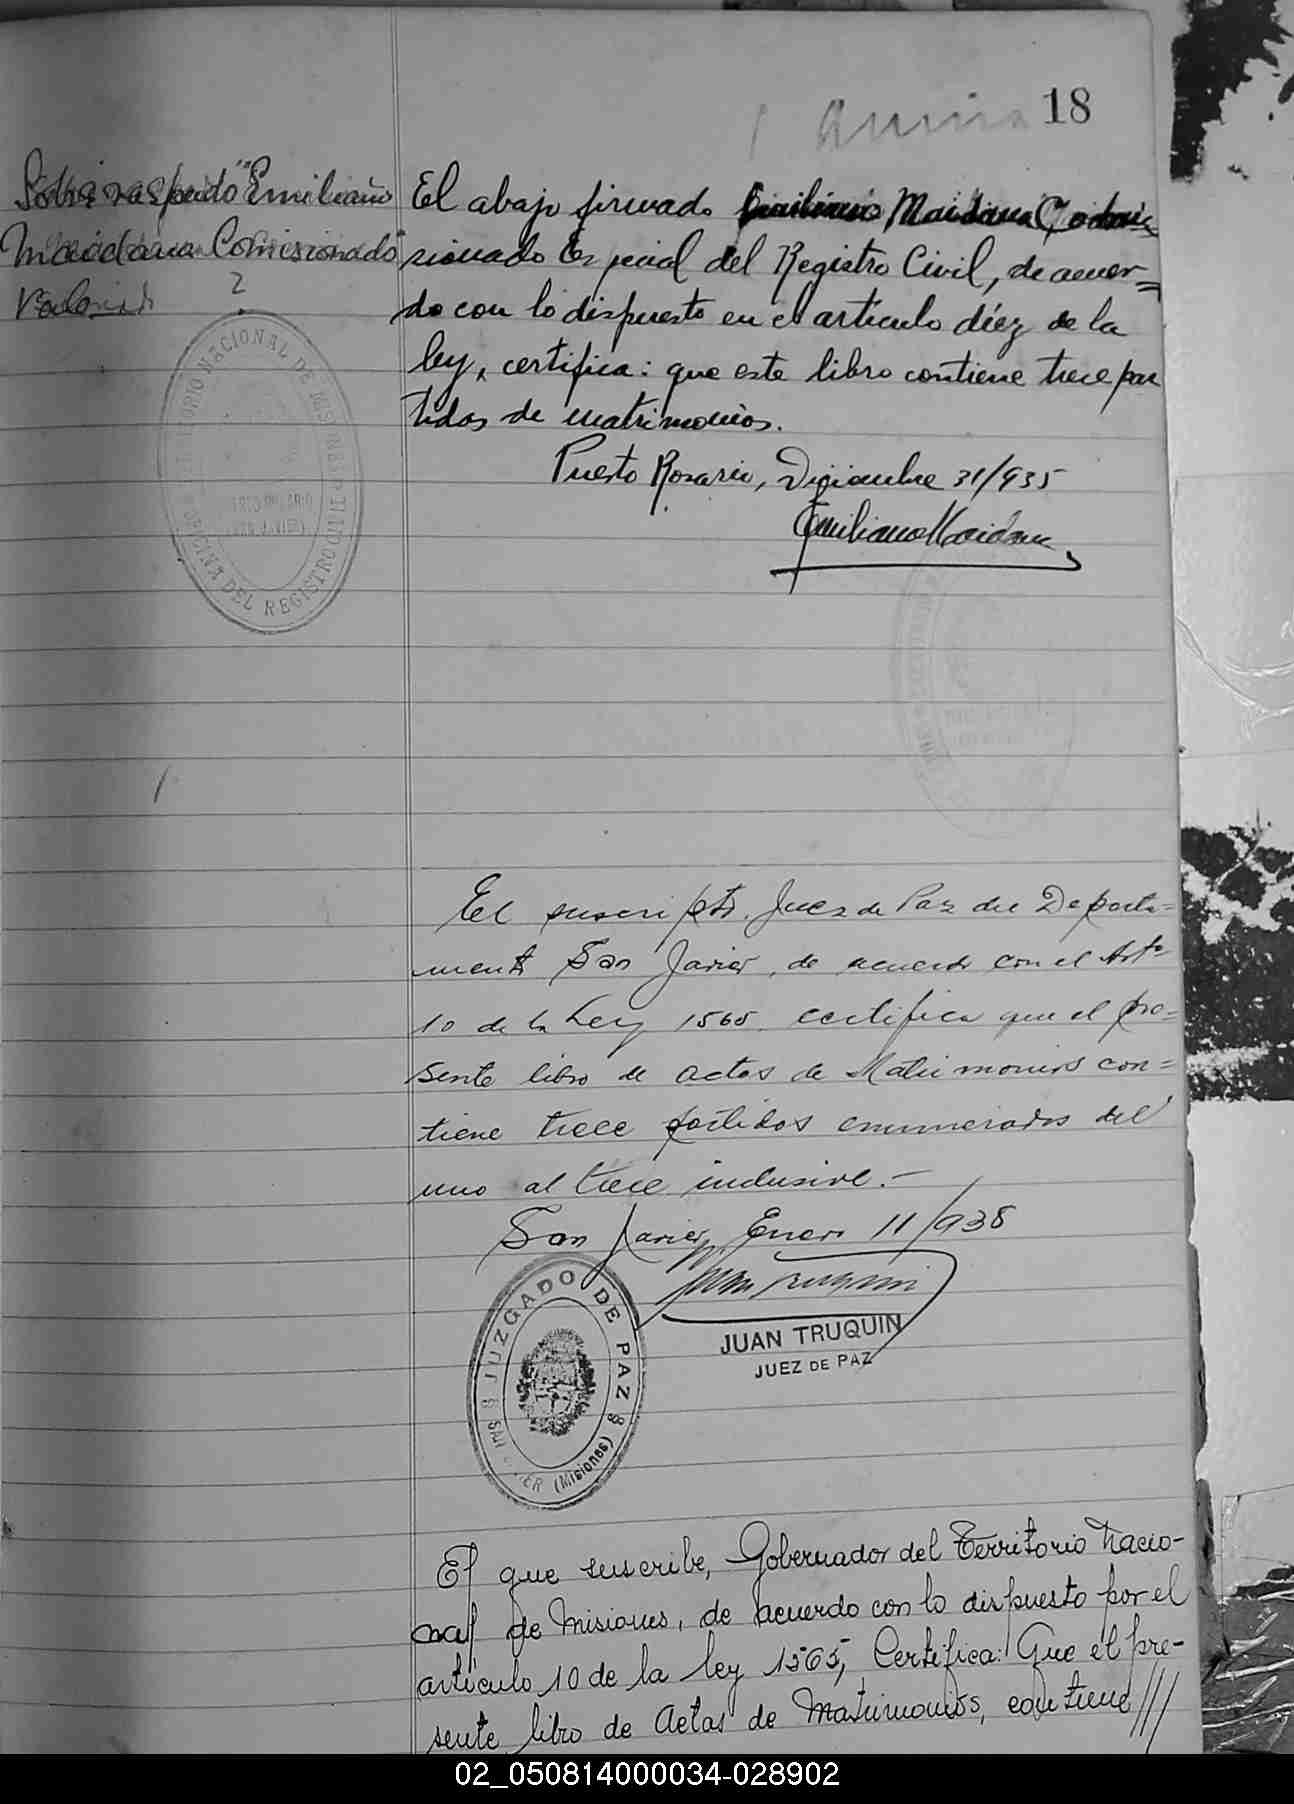 18
Sobre raspado "Emiliano
Maidana Comisionado"
Vale
El abajo firmado Emiliano Maidana Comi
sionado Especial del Registro Civil, de acuer=
do con lo dispuesto en el artículo diez de la
ley, certifica: que este libro contiene trece par
tidas de matrimonios.
Puerto Rosario, Diciembre 31/935
Emiliano Maidana
TERRITORIO NACIONAL DE MISIONES
OFICINA DEL REGISTRO CIVIL
El suscripto, Juez de Paz del Departa=
mento San Javier, de acuerdo con el Artº
10 de la Ley 1565, certifica que el pre=
sente libro de actas de Matrimonios con=
tiene trece partidas enumeradas del
uno al trece inclusive.-
San Javier, Enero 11/936
Juan Truquin
JUAN TRUQUIN
JUEZ DE PAZ
JUZGADO DE PAZ
SAN JAVIER (Misiones)
El que suscribe, Gobernador del Territorio Nacio-
nal de Misiones, de acuerdo con lo dispuesto por el
artículo 10 de la ley 1565, Certifica: Que el pre-
sente libro de Actas de Matrimonios, contiene///
02_050814000034-028902